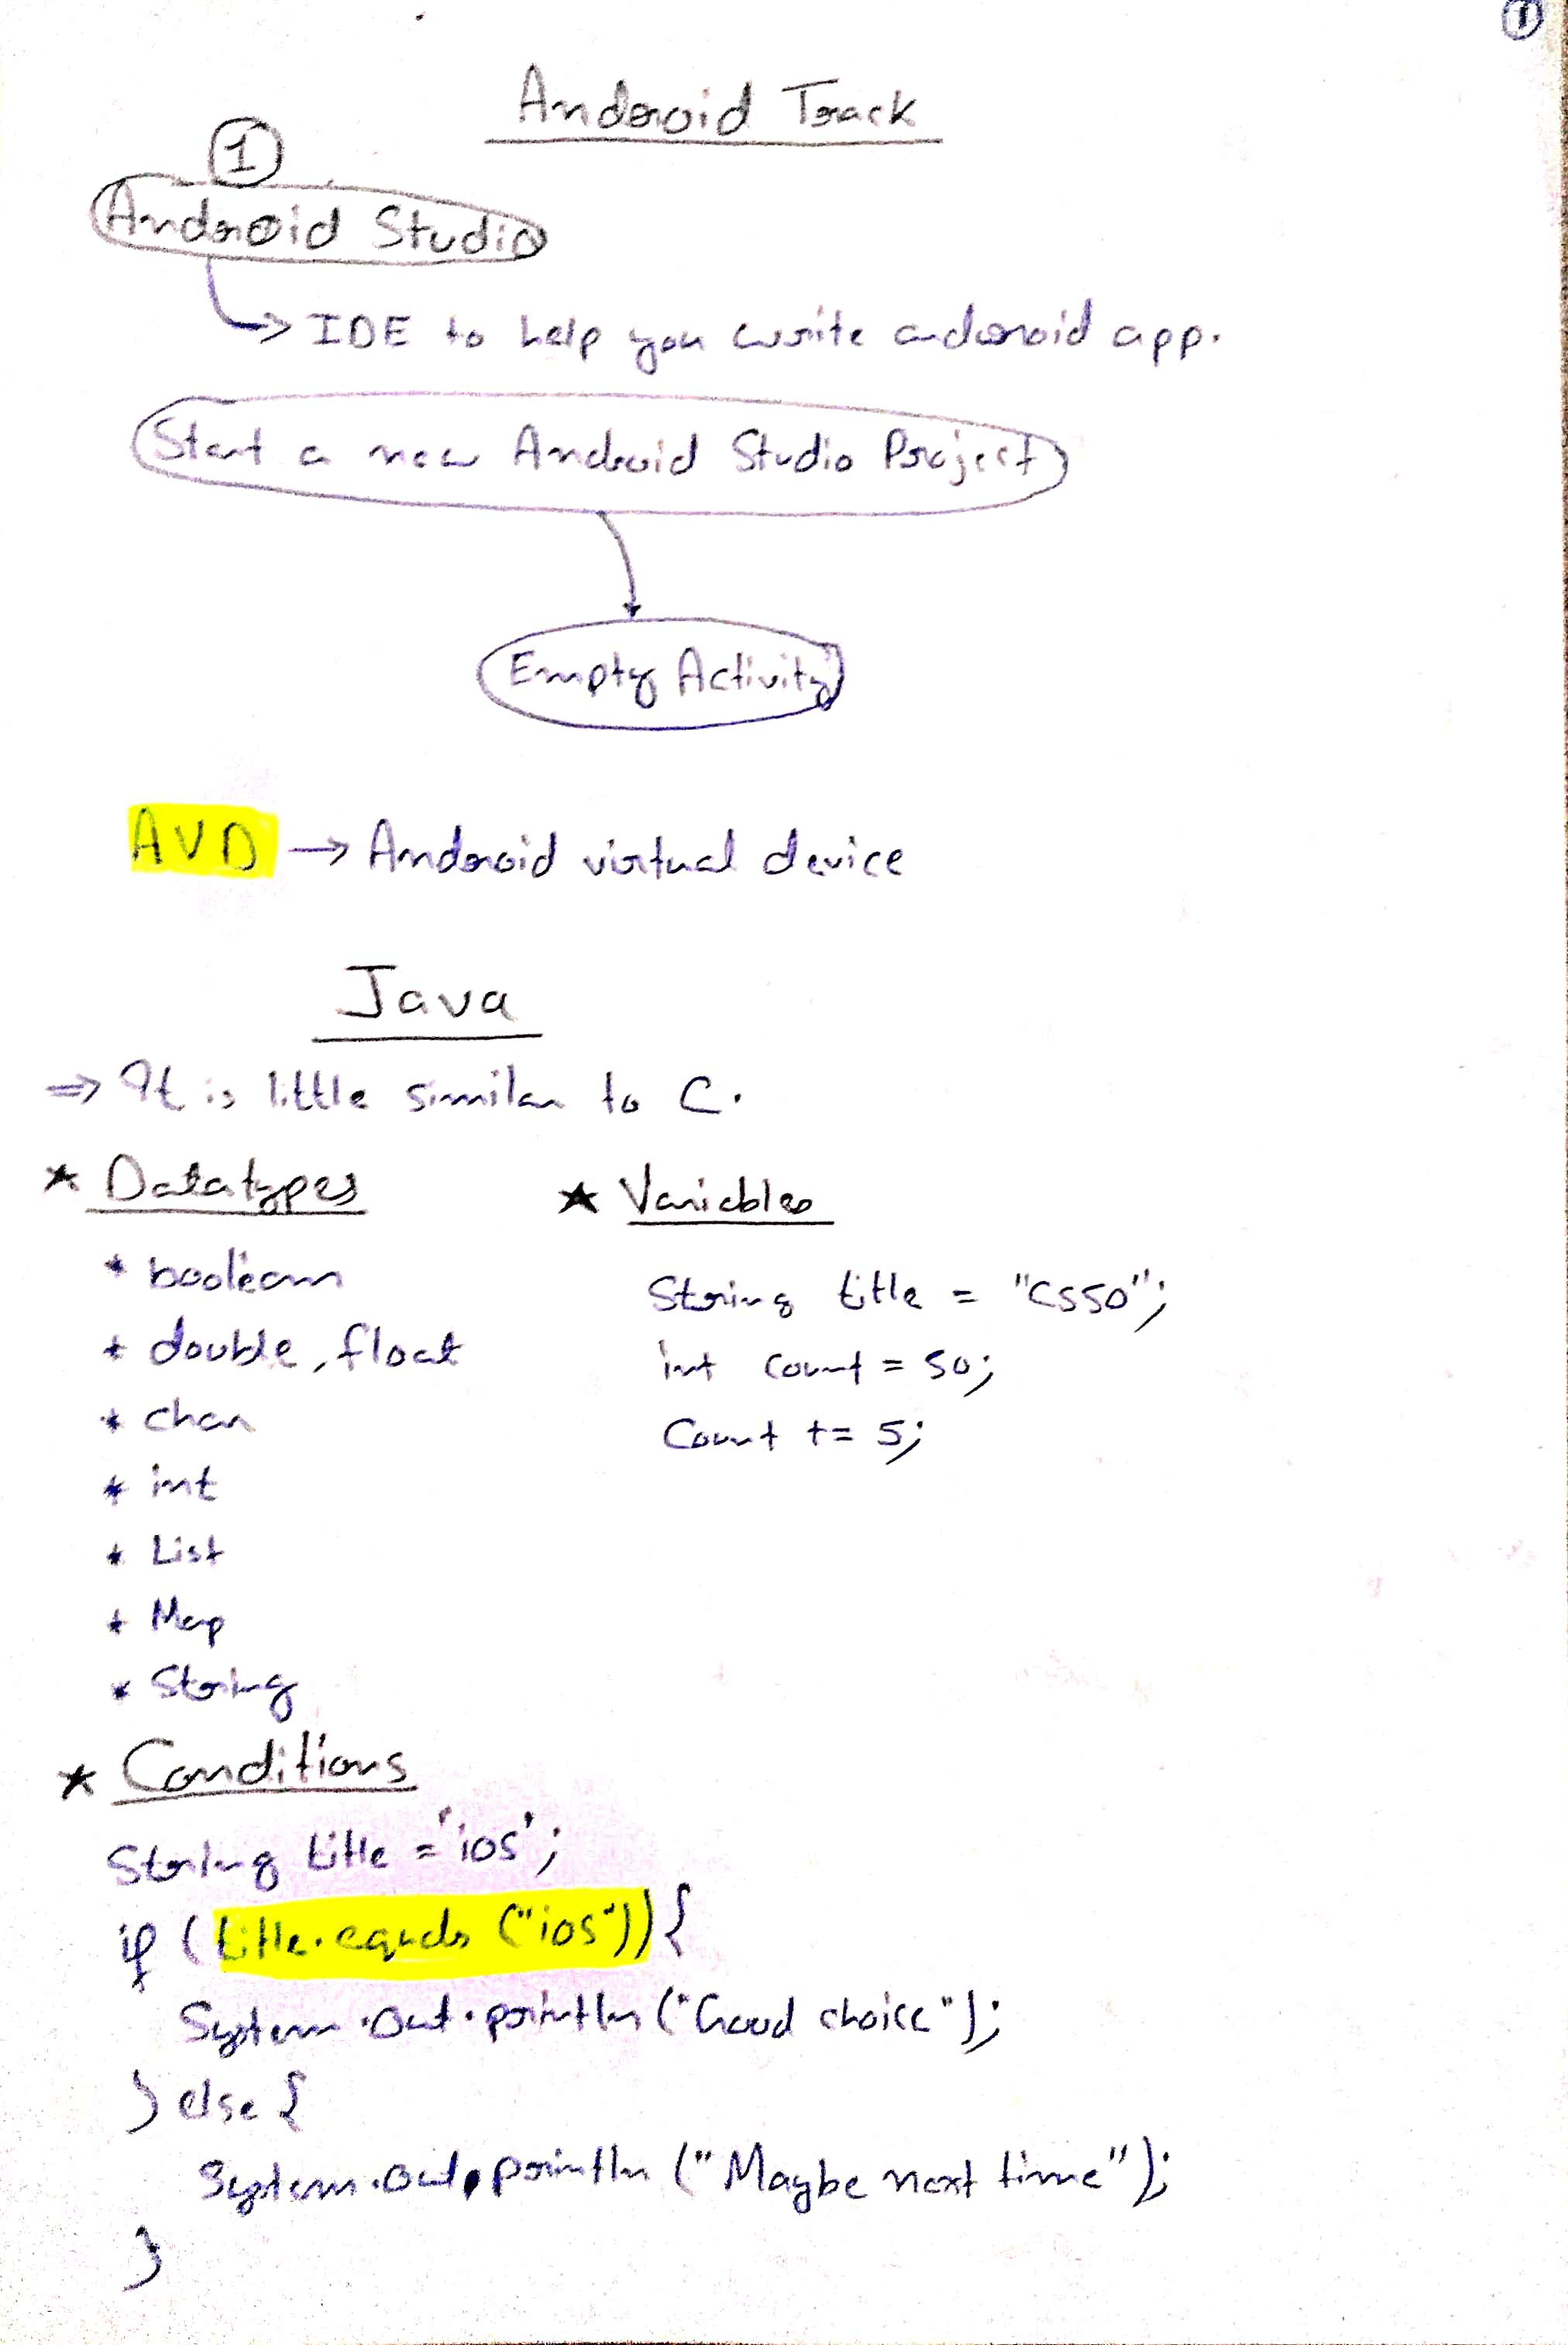 1
Android Track
1
Android Studio
→ IDE to help you write android app.
Start a new Android Studio Project
Empty Activity
AVD → Android virtual device
Java
⇒ It is little similar to C.
* Datatypes
* boolean
* double, float
* char
* int
* List
* Map
* String
* Variables
String title = "CS50";
int count = 50;
Count += 5;
* Conditions
String title = 'ios';
if (title.equals ("ios")) {
System.out.println ("Good choice");
} else {
System.out.println ("Maybe next time");
}